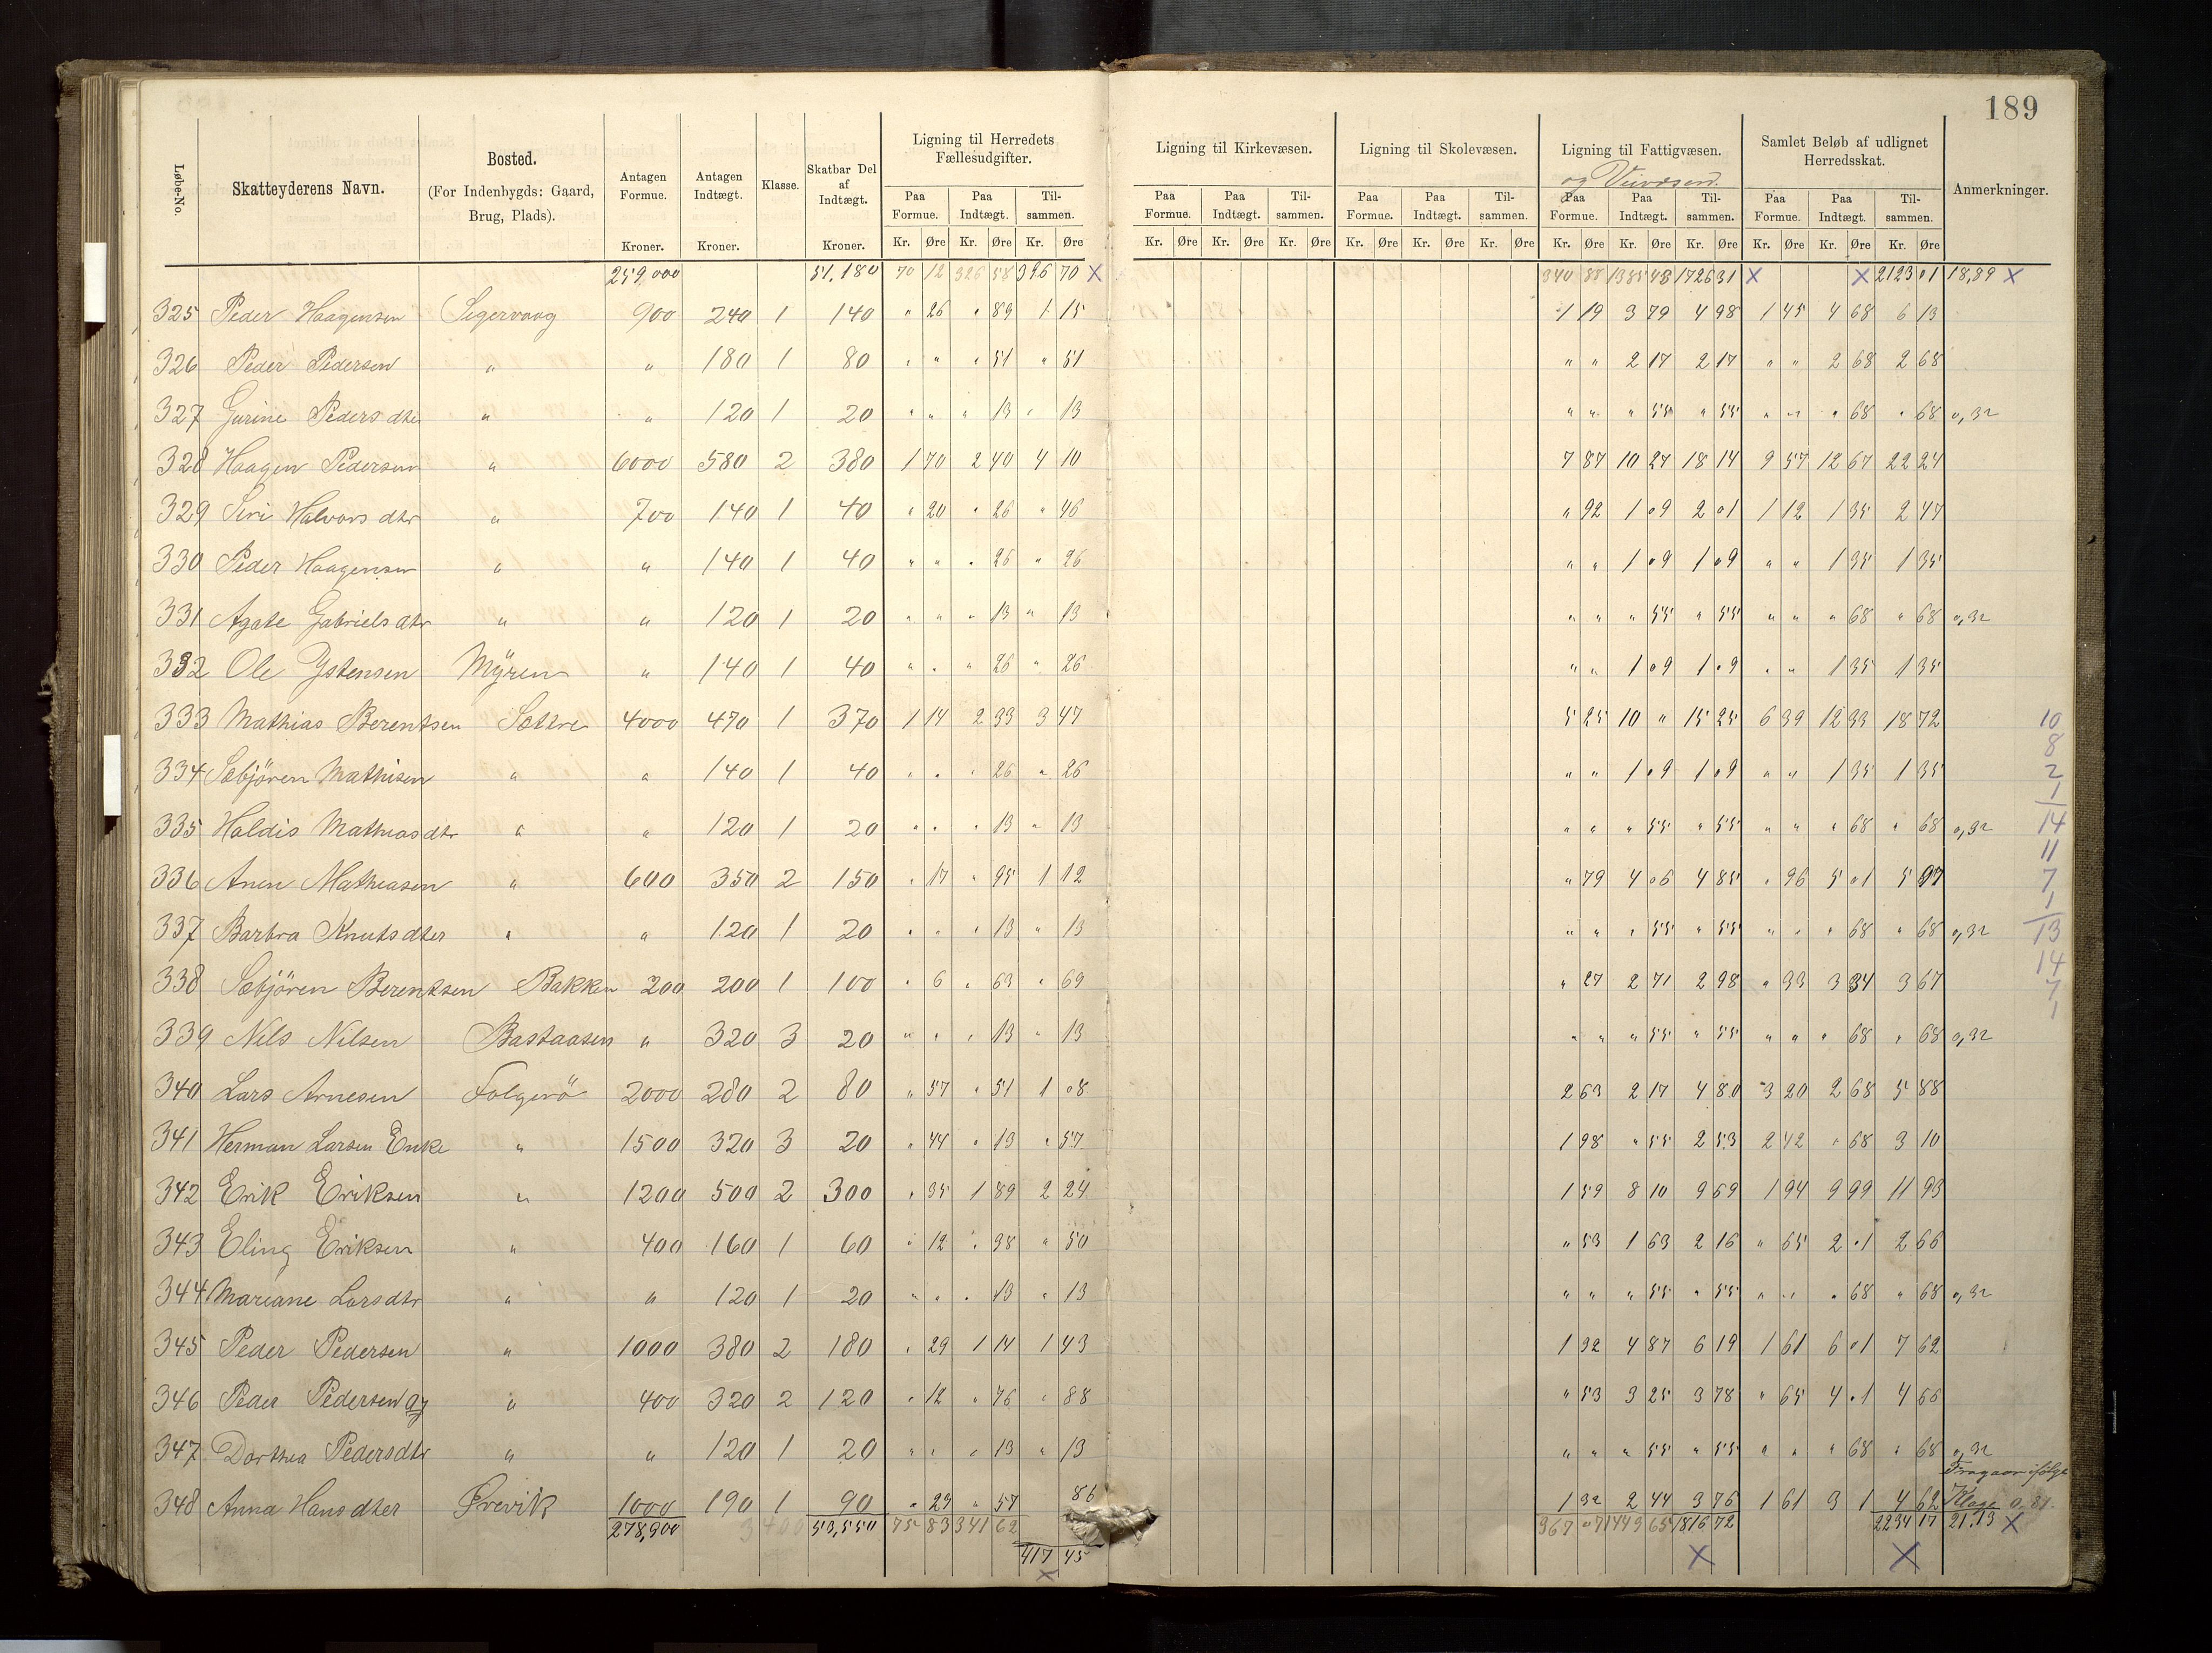 189
Løbe-No. Skatteyderens Navn. Bosted. (For Indenbygds: Gaard, Brug, Plads). Antagen Formue. Kroner. Antagen Indtægt. Kroner. Klasse. Skatbar Del af Indtægt. Kroner. Ligning til Herredets Fællesudgifter. Ligning til Kirkevæsen. Ligning til Skolevæsen. Ligning til Fattigvæsen. og Veivæsen. Samlet Beløb af udlignet Herredsskat. Anmerkninger.
Paa Formue. Paa Indtægt. Tilsammen. Paa Formue. Paa Indtægt. Tilsammen. Paa Formue. Paa Indtægt. Tilsammen. Paa Formue. Paa Indtægt. Tilsammen. Paa Formue. Paa Indtægt. Tilsammen.
Kr. Øre Kr. Øre Kr. Øre Kr. Øre Kr. Øre Kr. Øre Kr. Øre Kr. Øre Kr. Øre Kr. Øre Kr. Øre Kr. Øre Kr. Øre Kr. Øre Kr. Øre
259,000 51,180 70 12 326 58 396 70 X 340 88 1385 43 1726 31 X X 2123 01 18,89 X
325 Peder Haagensen Segervaag 900 240 1 140 " 26 " 89 1 15 1 19 3 79 4 98 1 45 4 68 6 13
326 Peder Pedersen " " 180 1 80 " " " 51 " 51 " " 2 17 2 17 " " 2 68 2 68
327 Gurine Pedersdter " " 120 1 20 " " " 13 " 13 " " " 55 " 55 " " " 68 " 68 0,32
328 Haagen Pedersen " 6000 580 2 380 1 70 2 40 4 10 7 87 10 27 18 14 9 57 12 67 22 24
329 Siri Halvorsdtr " 700 140 1 40 " 20 " 26 " 46 " 92 1 09 2 01 1 12 1 35 2 47
330 Peder Haagensen " " 140 1 40 " " " 26 " 26 " " 1 09 1 09 " " 1 35 1 35
331 Agate Gabrielsdtr " " 120 1 20 " " " 13 " 13 " " " 55 " 55 " " " 68 " 68 0,32
332 Ole Ystensen Myren " 140 1 40 " " " 26 " 26 " " 1 09 1 09 " " 1 35 1 35
333 Mathias Berentsen Sætre 4000 470 1 370 1 14 2 33 3 47 5 25 10 " 15 25 6 39 12 33 18 72 10
8
334 Sebjören Mathisen " " 140 1 40 " " " 26 " 26 " " 1 09 1 09 " " 1 35 1 35 2
1
335 Haldis Mathiasdtr " " 120 1 20 " " " 13 " 13 " " " 55 " 55 " " " 68 " 68 0,32 14
11
336 Anen Matheasen " 600 350 2 150 " 17 " 95 1 12 " 79 4 06 4 85 " 96 5 01 5 97 7
1
337 Barbra Knutsdter " " 120 1 20 " " " 13 " 13 " " " 55 " 55 " " " 68 " 68 0,32 13
14
338 Sebjören Berentsen Bakken 200 200 1 100 " 6 " 63 " 69 " 27 2 71 2 98 " 33 3 34 3 67 7
1
339 Nils Nilsen Bastaasen " 320 3 20 " " " 13 " 13 " " " 55 " 55 " " " 68 " 68 0,32
340 Lars Arnesen Folgerö 2000 280 2 80 " 57 " 51 1 08 2 63 2 17 4 80 3 20 2 68 5 88
341 Herman Larsen Enke " 1500 320 3 20 " 44 " 13 " 57 1 98 " 55 2 53 2 42 " 68 3 10
342 Erik Eriksen " 1200 500 2 300 " 35 1 89 2 24 1 59 8 10 9 69 1 94 9 99 11 93
343 Eling Eriksen " 400 160 1 60 " 12 " 38 " 50 " 53 1 63 2 16 " 65 2 01 2 66
344 Mariane Larsdtr " " 120 1 20 " " " 13 " 13 " " " 55 " 55 " " " 68 " 68 0,32
345 Peder Pedersen " 1000 380 2 180 " 29 1 14 1 43 1 32 4 87 6 19 1 61 6 01 7 62
346 Peder Pedersen yg " 400 320 2 120 " 12 " 76 " 88 " 53 3 25 3 78 " 65 4 01 4 66
347 Dorthea Pedersdtr " " 120 1 20 " " " 13 " 13 " " " 55 " 55 " " " 68 " 68 0,32
Fragaar ifølge
348 Anna Hansdter Ørevik 1000 190 1 90 " 29 " 57 86 1 32 2 44 3 76 1 61 3 1 4 62 Klage 0.81
278,900 3400 53,550 75 83 341 62 367 07 1449 65 1816 72 2234 17 21.13 X
417 45 X X
X